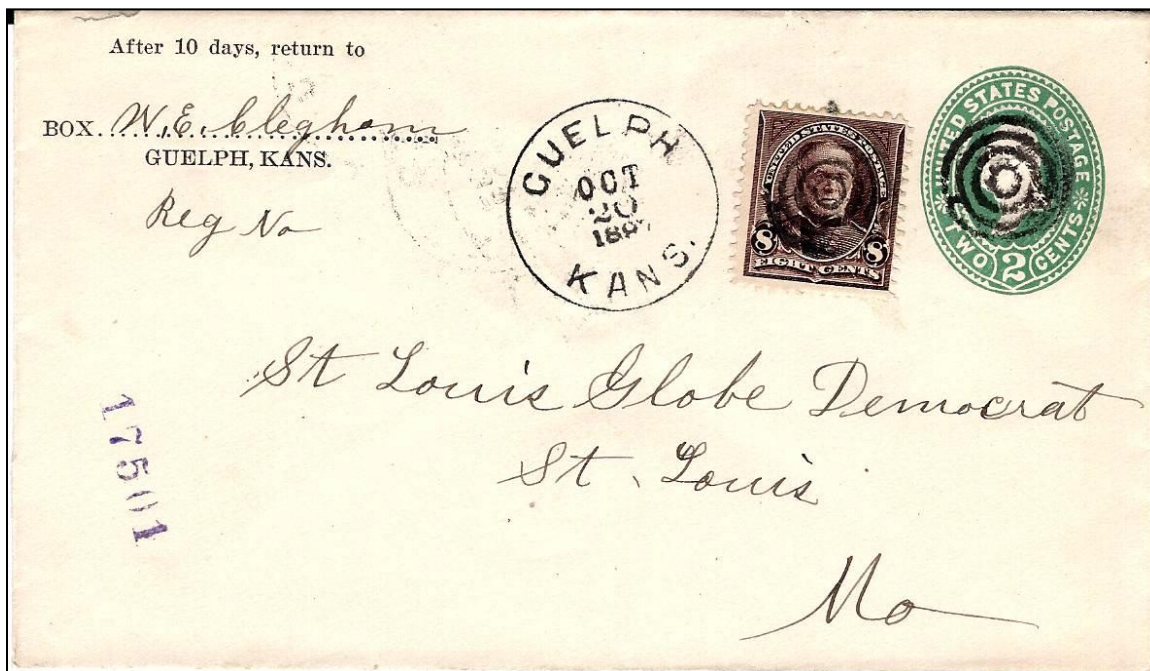 After 10 days, return to
BOX W. E. Cleghorn
GUELPH, KANS.
Reg No
GUELPH
OCT
20
KANS.
UNITED STATES POSTAGE
8 8
EIGHT CENTS
UNITED STATES POSTAGE
TWO 2 CENTS
St Louis Globe Democrat
St. Louis
Mo
17501